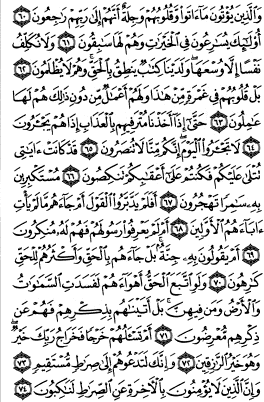 وَالَّذِينَ يُؤْتُونَ مَا ءَاتَوا وَّقُلُوبُهُمْ وَجِلَةٌ أَنَّهُمْ إِلَىٰ رَبِّهِمْ رَٰجِعُونَ ۝٦٠
أُو۟لَٰٓئِكَ يُسَٰرِعُونَ فِى الْخَيْرَٰتِ وَهُمْ لَهَا سَٰبِقُونَ ۝٦١ وَلَا نُكَلِّفُ
نَفْسًا إِلَّا وُسْعَهَا ۖ وَلَدَيْنَا كِتَٰبٌ يَنطِقُ بِالْحَقِّ ۚ وَهُمْ لَا يُظْلَمُونَ ۝٦٢
بَلْ قُلُوبُهُمْ فِى غَمْرَةٍ مِّنْ هَٰذَا وَلَهُمْ أَعْمَٰلٌ مِّن دُونِ ذَٰلِكَ هُمْ لَهَا
عَٰمِلُونَ ۝٦٣ حَتَّىٰٓ إِذَآ أَخَذْنَا مُتْرَفِيهِم بِالْعَذَابِ إِذَا هُمْ يَجْـَٔرُونَ
۝٦٤ لَا تَجْـَٔرُوا الْيَوْمَ ۖ إِنَّكُم مِّنَّا لَا تُنصَرُونَ ۝٦٥ قَدْ كَانَتْ ءَايَٰتِى
تُتْلَىٰ عَلَيْكُمْ فَكُنتُمْ عَلَىٰٓ أَعْقَٰبِكُمْ تَنكِصُونَ ۝٦٦ مُسْتَكْبِرِينَ
بِهِۦ سَٰمِرًا تَهْجُرُونَ ۝٦٧ أَفَلَمْ يَدَّبَّرُوا الْقَوْلَ أَمْ جَآءَهُم مَّا لَمْ يَأْتِ
ءَابَآءَهُمُ الْأَوَّلِينَ ۝٦٨ أَمْ لَمْ يَعْرِفُوا رَسُولَهُمْ فَهُمْ لَهُۥ مُنكِرُونَ
۝٦٩ أَمْ يَقُولُونَ بِهِۦ جِنَّةٌۢ ۚ بَلْ جَآءَهُم بِالْحَقِّ وَأَكْثَرُهُمْ لِلْحَقِّ
كَٰرِهُونَ ۝٧٠ وَلَوِ اتَّبَعَ الْحَقُّ أَهْوَآءَهُمْ لَفَسَدَتِ السَّمَٰوَٰتُ
وَالْأَرْضُ وَمَن فِيهِنَّ ۚ بَلْ أَتَيْنَٰهُم بِذِكْرِهِمْ فَهُمْ عَن
ذِكْرِهِم مُّعْرِضُونَ ۝٧١ أَمْ تَسْـَٔلُهُمْ خَرْجًا فَخَرَاجُ رَبِّكَ خَيْرٌ ۖ
وَهُوَ خَيْرُ الرَّٰزِقِينَ ۝٧٢ وَإِنَّكَ لَتَدْعُوهُمْ إِلَىٰ صِرَٰطٍ مُّسْتَقِيمٍ ۝٧٣
وَإِنَّ الَّذِينَ لَا يُؤْمِنُونَ بِالْءَاخِرَةِ عَنِ الصِّرَٰطِ لَنَٰكِبُونَ ۝٧٤